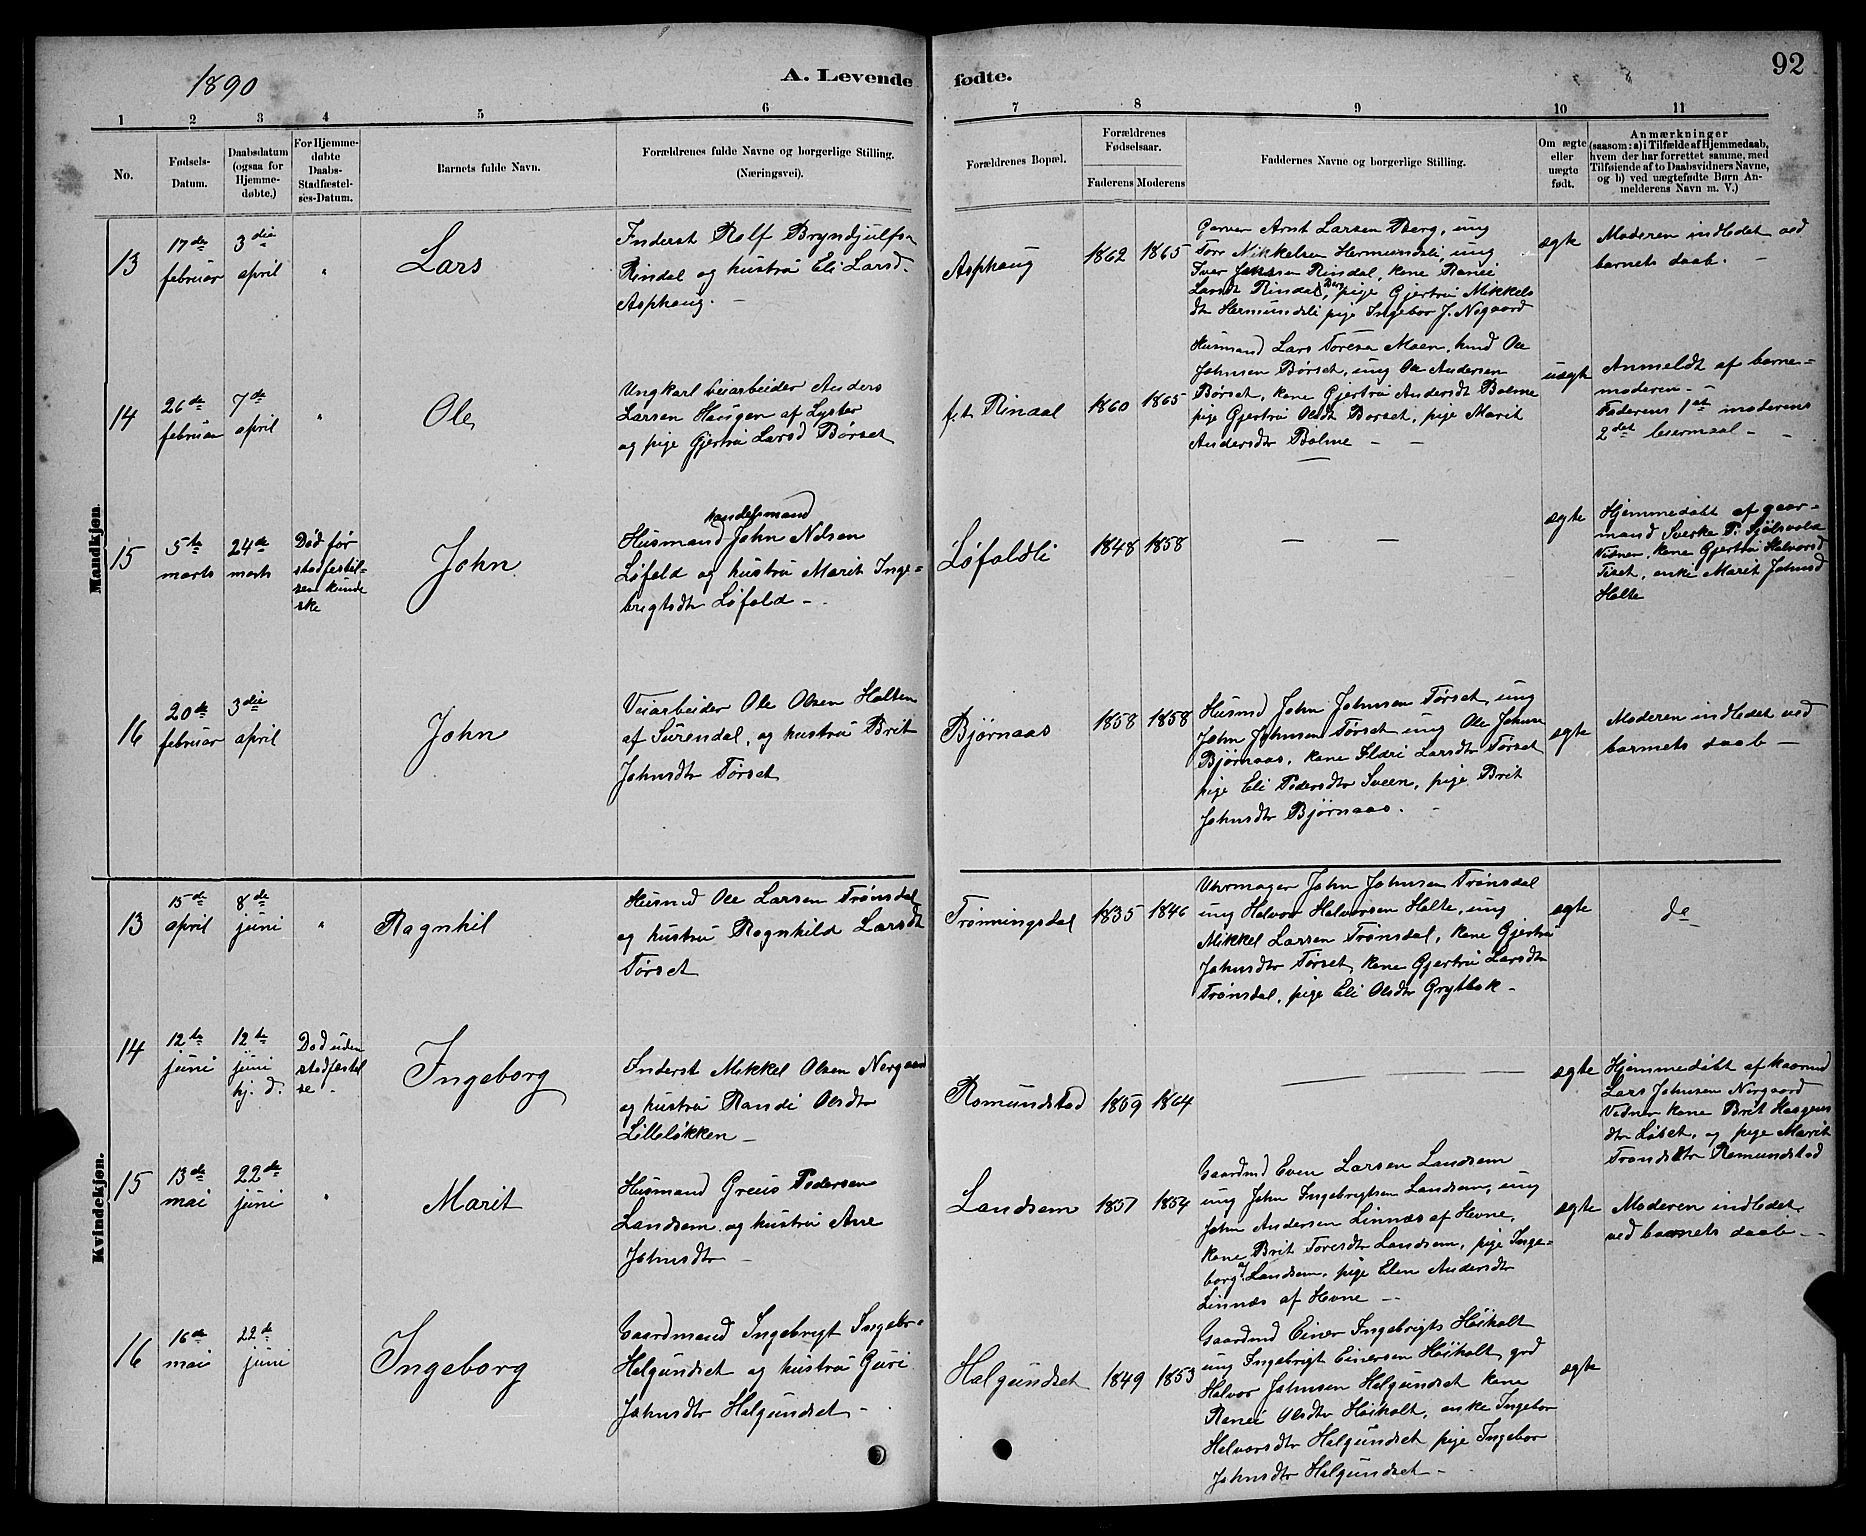 1890
A. Levende
fødte.
92
1
2
3
4
5
6
7
8
9
10
11
No.
Fødsels-
Datum.
Daabsdatum
(ogsaa for
Hjemme-
døbte.)
For Hjemme-
døbte
Daabs-
Stadfæstel-
ses-Datum.
Barnets fulde Navn.
Forældrenes fulde Navne og borgerlige Stilling.
(Næringsvei).
Forældrenes Bopæl.
Forældrenes
Fødselsaar.
Faderens
Moderens
Faddernes Navne og borgerlige Stilling.
Om ægte
eller
uægte
født.
Anmærkninger
(saasom: a) i Tilfælde af Hjemmedaab,
hvem der har forrettet samme, med
Tilføiende af to Daabsvidners Navne,
og b) ved uægtefødte Børn An-
melderens Navn m. V.)
Mandkjøn.
13
17de
februar
3die
april
"
Lars
Inderst Rolf Bryndjulfsn
Rindal og hustru Eli Larsd.
Asphaug. –
Asphaug
1862
1865
Garver Arnt Larsen Berg, ung
Tore Mikkelsen Hermundsli, ung
Iver Jonssen Rindal, kone Ranei
Larsdt Rindal, Berg pige Gjertru Mikkels
dtr Hermundsli pige Ingebor J. Nogaard
ægte
Moderen indledet ved
barnets daab. –
14
26de
februar
7de
april
"
Ole
Ungkarl veiarbeider Anders
Larsen Haugen af Lyster
og pige Gjertru Larsd Børset
f. t. Rindal
1860
1865
Husmand Lars Toresn Moen, husmd Ole
Johnsen Børset, ung Ole Andersen
Børset, kone Gjertru Andersdt Bolme
pige Gjertru Olsdt Børset, pige Marit
Andersdtr Bolme – –
uægte
Anmeldt af barne-
moderen –
Faderens 1ste moderens
2det leiermaal – –
15
5te
marts
24de
marts
Død før
stadfestel-
sen kunde
ske
John
handelsmand
Husmand John Nilsen
Løfald og hustru Marit Inge-
brigtsdtr Løfald –
Løfaldli
1848
1858
– –
ægte
Hjemmedøbt af gaar-
mand Sverke P. Fjølsvold
Vidner, kone Gjertru Halvorsd
Tiset, enke Marit Johnsd
Holte
16
20de
februar
3die
april
John
Veiarbeider Ole Olsen Holten
af Surendal, og hustru Brit
Johnsdtr Tørset
Bjørnaas
1858
1858
Husmd John Johnsen Tørset, ung
John Johnsen Tørset ung Ole Johnsn
Bjørnaas, kone Ildri Larsdtr Tørset
pige Eli Pedersdtr Sveen, pige Brit
Johnsdtr Bjørnaas. –
ægte
Moderen indledet ved
barnets daab –
Kvindekjøn.
13
15de
april
8de
juni
"
Ragnhil
Husmd Ole Larsen Trønsdal
og hustru Ragnhild Larsdt
Tørset
Trønningsdal
1835
1846
Uhrmager John Johnsen Trønsdal
ung Halvor Halvorsen Holte, ung
Mikkel Larsen Trønsdal, kone Gjertru
Johnsdtr Tørset, kone Gjertru Larsdtr
Trønsdal, pige Eli Olsdtr Grytbak –
ægte
do
14
12te
juni
12te
juni
hj. d.
Død uden
stadfestel
se –
Ingeborg
Inderst Mikkel Olsen Nergaard
og hustru Randi Olsdtr
Lilleløkken –
Romundstad
1859
1864
ægte
Hjemmedøbt af kaarmd
Lars Johnsen Nergaard
Vidner kone Brit Haagens
dtr Løset, og pige Marit
Trondsdtr Romundstad
15
13de
mai
22de
juni
"
Marit
Husmand Greus Pedersen
Landsem og hustru Ane
Johnsdtr –
Landsem
1857
1854
Gaardmd Even Larsen Landsem
ung John Ingebrigtsen Landsem, ung
John Andersen Linnæs af Hevne,
kone Brit Toresdtr Landsem, pige Inge-
borg J Landsem, pige Elen Andersdtr
Linnæs af Hevne –
ægte
Moderen indledet
ved barnets daab –
16
16de
mai
22de
juni
Ingeborg
Gaardmand Ingebrigt Ingebr.
Halgundset og hustru Guri
Johnsdtr Halgundset –
Halgundset
1849
1853
Gaardmd Einer Ingebrigts Høiholt
ung Ingebrigt Einersen Høiholt, grd
Halvor Johnsen Halgundset kone
Ranei Olsdtr Høiholt, enke Ingebor
Halvorsdtr Halgundset pige Ingebor
Johnsdtr Halgundset –
ægte